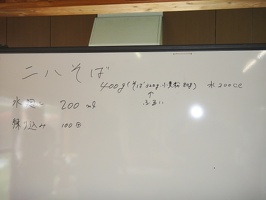 二八そば
400g(そば320g 小麦粉80g) 水200cc
ふるい
水 200 ml
練り込み 100回